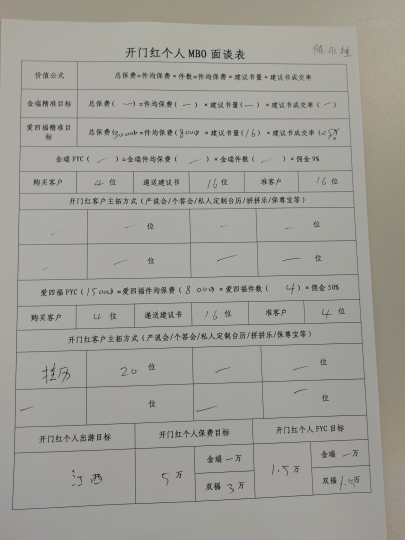 开门红个人 MBO 面谈表
价值公式 总保费=件均保费*件数=件均保费*建议书量*建议书成交率
金瑞精准目标 总保费(—)=件均保费(—)*建议书量(—)*建议书成交率(—)
爱四福精准目标 总保费(30000)=件均保费(8000)*建议书量(16)*建议书成交率
金瑞 FYC(—)=金瑞件均保费(—)*金瑞件数(—)*佣金 9%
购买客户 4位 递送建议书 16位 准客户 16位
开门红客户主拓方式(产说会/个答会/私人定制台历/拼拼乐/保尊宝等)
— —位 — —位
— —位 — —位
爱四福 FYC(15000)=爱四福件均保费(8000)*爱四福件数(4)*佣金 50%
购买客户 4位 递送建议书 16位 准客户 4位
开门红客户主拓方式(产说会/个答会/私人定制台历/拼拼乐/保尊宝等)
挂历 20位 — —位
— 位 — —位
开门红个人出游目标 开门红个人保费目标 开门红个人 FYC 目标
江西 5万 金瑞 —万 1.5万 金瑞 —万
双福 3万 双福 万